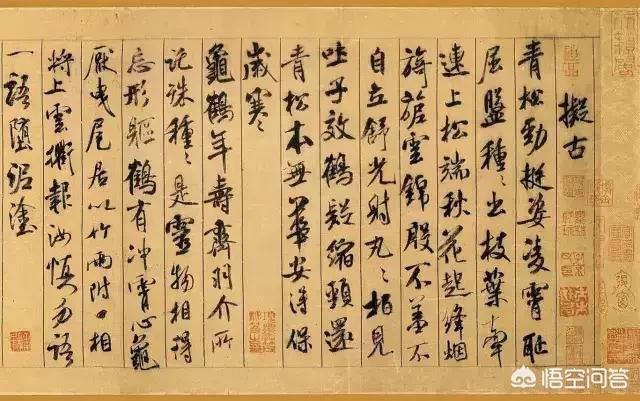 擬古
青松勁挺姿凌霄恥
屈盤種々出枝葉牽
連上松端秋花起絳烟
旖旎雲錦殷不羞不
自立舒光射丸々柏見
吐子效鶴疑縮頸還
青松本無華安得保
歲寒々
龜鶴年壽齊羽介所
託殊種々是靈物相得
忘形軀鶴有沖霄心龜
厭曳尾居以竹兩附口相
將上雲衢報汝慎勿語
一語墮泥塗
悟空问答